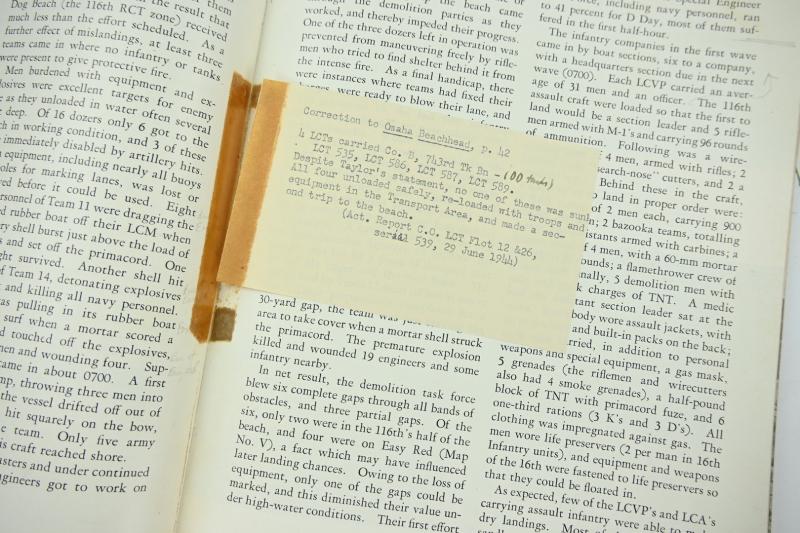 Dog Beach (the 116th RCT zone) received
much less than the effort scheduled. As a
further effect of mislandings, at least three
teams came in where no infantry or tanks
were present to give protective fire.
Men burdened with equipment and ex-
losives were excellent targets for enemy
e as they unloaded in water often several
deep. Of 16 dozers only 6 got to the
ch in working condition, and 3 of these
immediately disabled by artillery hits.
equipment, including nearly all buoys
oles for marking lanes, was lost or
yed before it could be used. Eight
rsonnel of Team 11 were dragging the
d rubber boat off their LCM when
ry shell burst just above the load of
s and set off the primacord. One
ght survived. Another shell hit
f Team 14, detonating explosives
and killing all navy personnel.
as pulling in its rubber boat
surf when a mortar scored a
d touched off the explosives,
en and wounding four. Sup-
came in about 0700. A first
mp, throwing three men into
the vessel drifted off out of
hit squarely on the bow,
e team. Only five army
is craft reached shore.
asters and under continued
gineers got to work on
through the demolition parties as they
worked, and thereby impeded their progress.
One of the three dozers left in operation was
prevented from maneuvering freely by rifle-
men who tried to find shelter behind it from
the intense fire. As a final handicap, there
were instances where teams had fixed their
were ready to blow their lane, and
Correction to Omaha Beachhead, p. 42
4 LCTs carried Co. B, 743rd Tk Bn - (00 tanks)
LCT 535, LCT 586, LCT 587, LCT 589.
Despite Taylor's statement, no one of these was sunk
All four unloaded safely, re-loaded with troops and
equipment in the Transport Area, and made a sec-
ond trip to the beach.
(Act. Report C.O. LCT Flot 12 &26,
serial 539, 29 June 1944)
30-yard gap, the team was just
area to take cover when a mortar shell struck
the primacord. The premature explosion
killed and wounded 19 engineers and some
infantry nearby.
In net result, the demolition task force
blew six complete gaps through all bands of
obstacles, and three partial gaps. Of the
six, only two were in the 116th's half of the
beach, and four were on Easy Red (Map
No. V), a fact which may have influenced
later landing chances. Owing to the loss of
equipment, only one of the gaps could be
marked, and this diminished their value un-
der high-water conditions. Their first effort
Force, including navy personnel, ran
to 41 percent for D Day, most of them suf-
fered in the first half-hour.
The infantry companies in the first wave
came in by boat sections, six to a company,
with a headquarters section due in the next
wave (0700). Each LCVP carried an aver-
age of 31 men and an officer. The 116th
assault craft were loaded so that the first to
land would be a section leader and 5 rifle-
men armed with M-1's and carrying 96 rounds
of ammunition. Following was a wire-
4 men, armed with rifles; 2
"search-nose" cutters, and 2 a
Behind these in the craft,
land in proper order were:
of 2 men each, carrying 900
n; 2 bazooka teams, totalling
istants armed with carbines; a
f 4 men, with a 60-mm mortar
unds; a flamethrower crew of
nally, 5 demolition men with
k charges of TNT. A medic
tant section leader sat at the
body wore assault jackets, with
and built-in packs on the back;
rried, in addition to personal
weapons and special equipment, a gas mask,
5 grenades (the riflemen and wirecutters
also had 4 smoke grenades), a half-pound
block of TNT with primacord fuze, and 6
one-third rations (3 K's and 3 D's). All
clothing was impregnated against gas. The
men wore life preservers (2 per man in 16th
Infantry units), and equipment and weapons
of the 16th were fastened to life preservers so
that they could be floated in.
As expected, few of the LCVP's and LCA's
carrying assault infantry were able to
dry landings. Most of